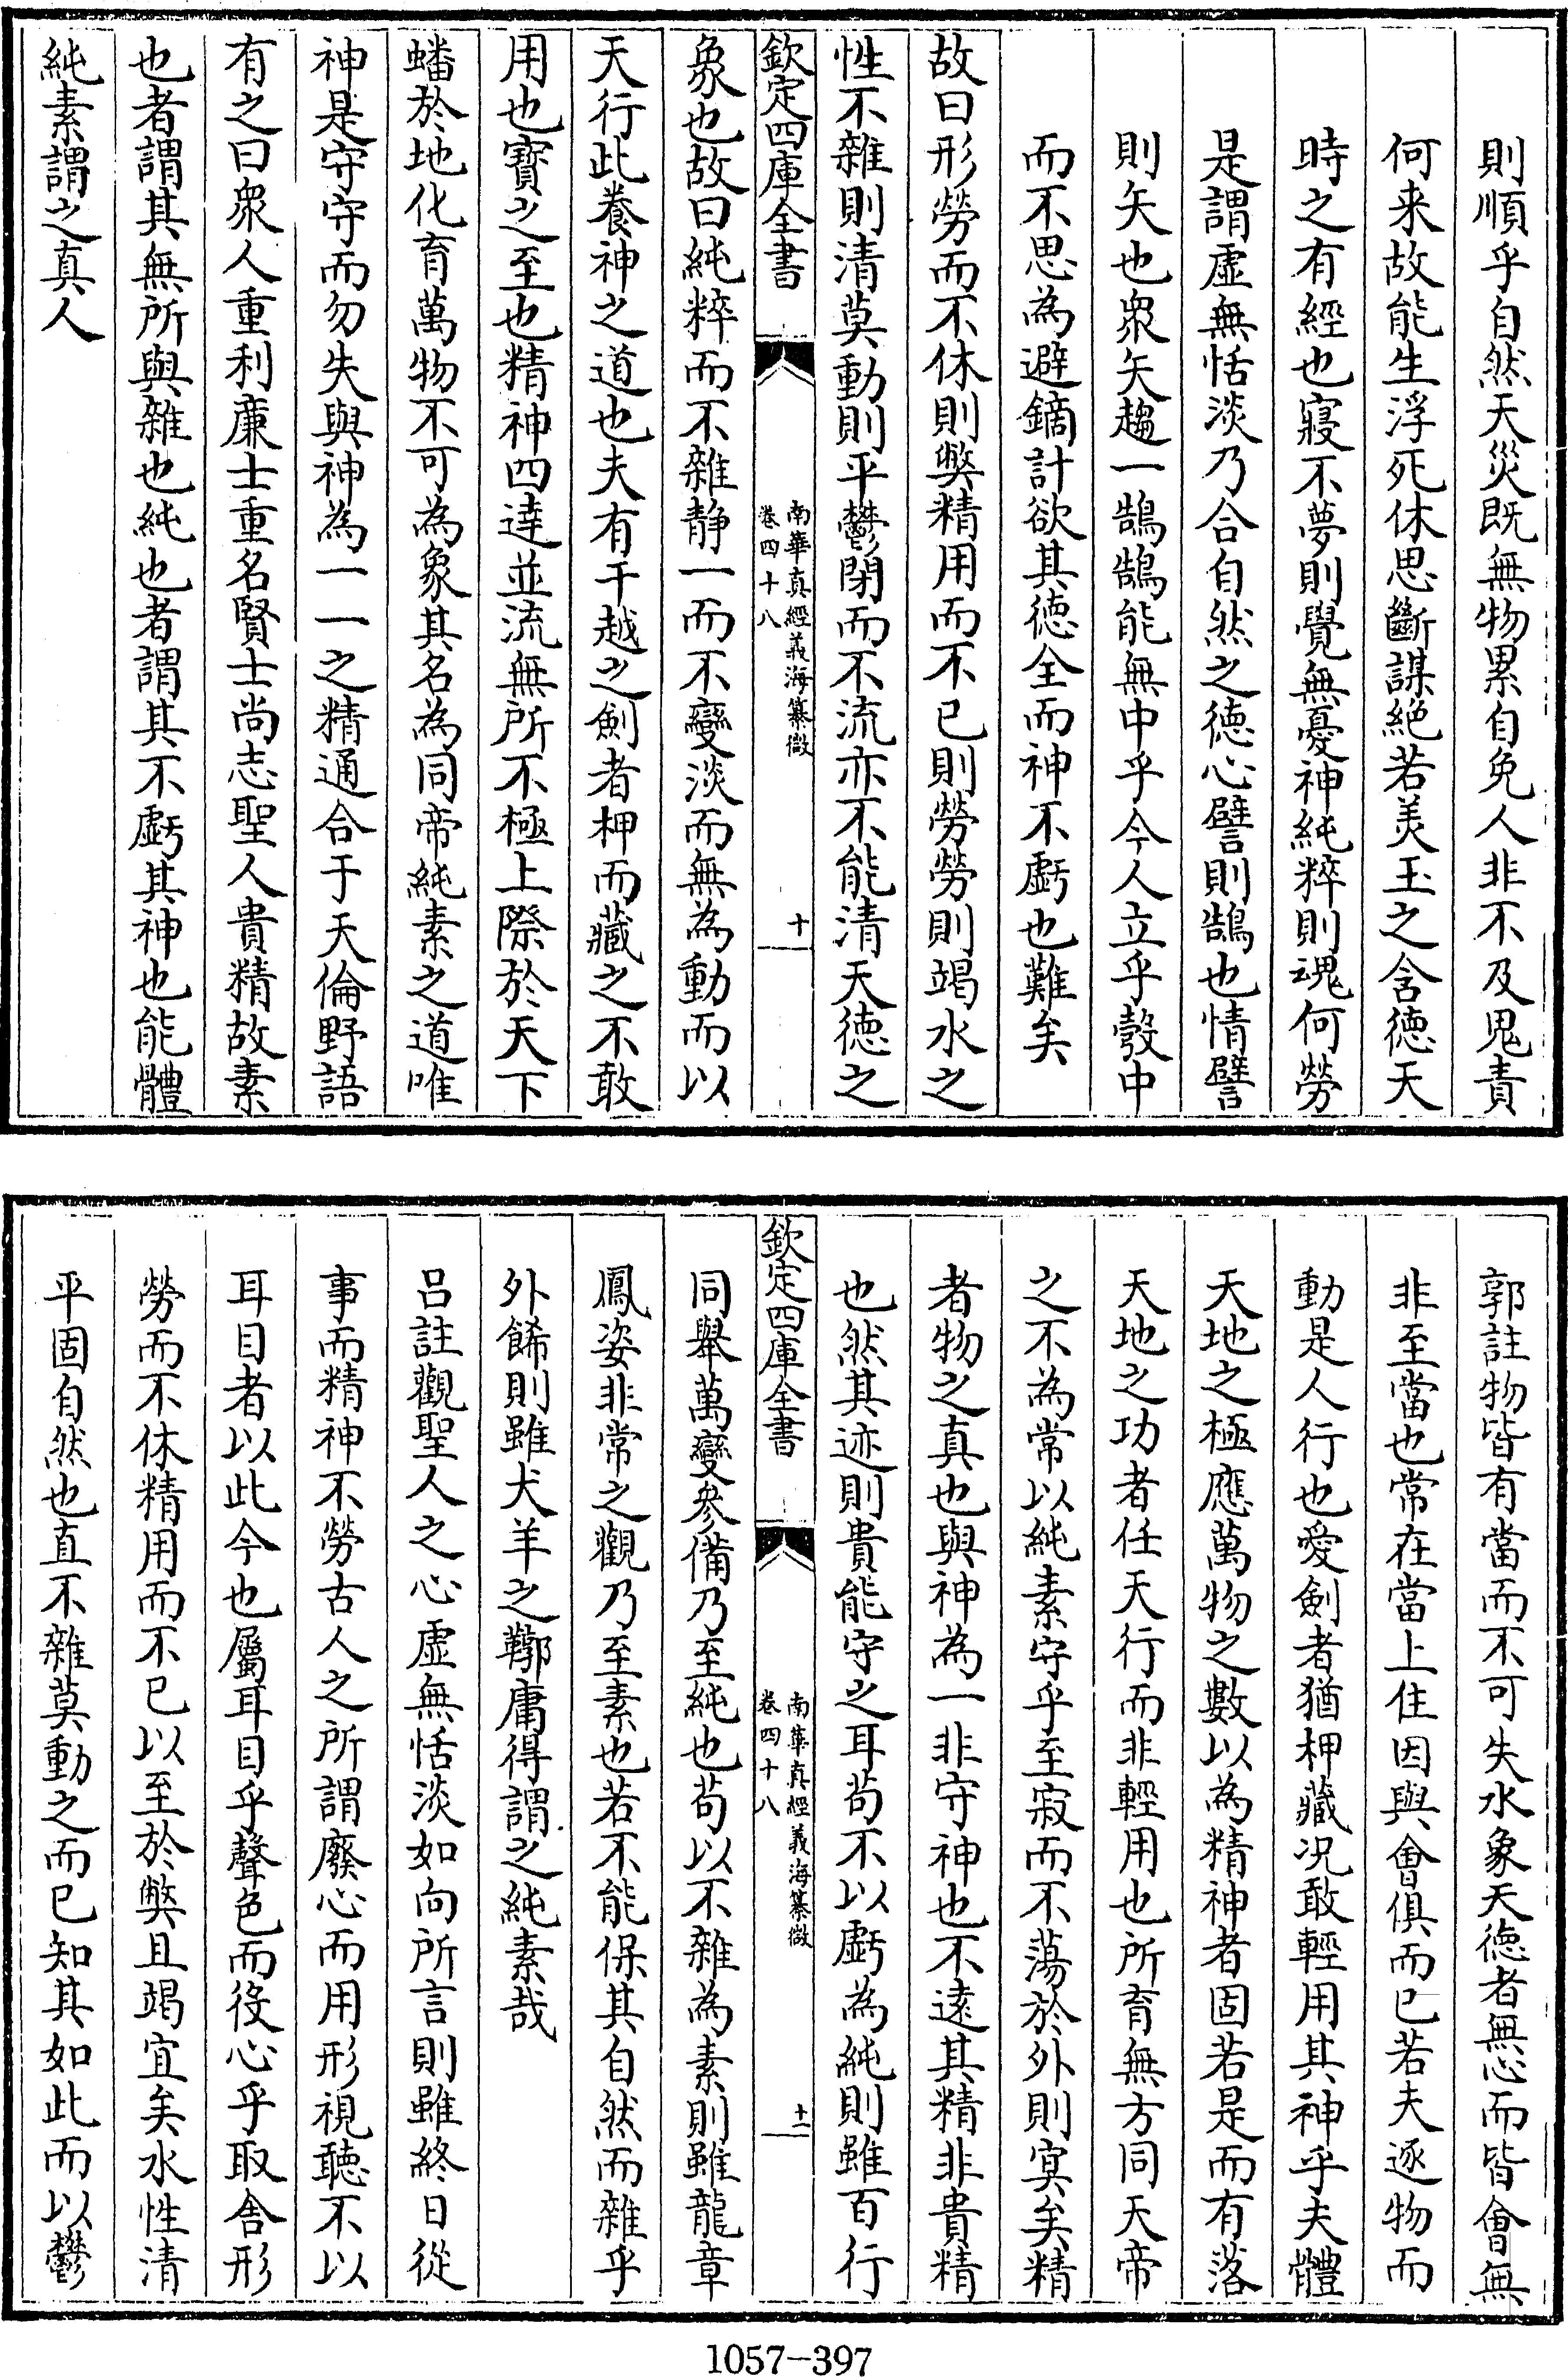 則順乎自然天災既無物累自免人非不及鬼責
何来故能生浮死休思斷謀絶若美玉之含徳天
時之有經也寢不夢則覺無憂神純粹則魂何勞
是謂虚無恬淡乃合自然之徳心譬則鵠也情譬
則矢也衆矢趨一鵠鵠能無中乎今人立乎彀中
而不思為避鏑計欲其徳全而神不虧也難矣
故曰形勞而不休則弊精用而不已則勞勞則竭水之
性不雜則清莫動則平鬱閉而不流亦不能清天徳之
欽定四庫全書
南華真經義海纂微
卷四十八
十
象也故曰純粹而不雜静一而不變淡而無為動而以
天行此養神之道也夫有干越之劍者柙而藏之不敢
用也寳之至也精神四達並流無所不極上際於天下
蟠於地化育萬物不可為象其名為同帝純素之道唯
神是守守而勿失與神為一一之精通合于天倫野語
有之曰衆人重利廉士重名賢士尚志聖人貴精故素
也者謂其無所與雜也純也者謂其不虧其神也能體
純素謂之真人
郭註物皆有當而不可失水象天徳者無心而皆會無
非至當也常在當上住因與會俱而已若夫逐物而
動是人行也愛劍者猶柙藏况敢輕用其神乎夫體
天地之極應萬物之數以為精神者固若是而有落
天地之功者任天行而非輕用也所育無方同天帝
之不為常以純素守乎至寂而不蕩於外則㝠矣精
者物之真也與神為一非守神也不逺其精非貴精
也然其迹則貴能守之耳苟不以虧為純則雖百行
欽定四庫全書
南華真經義海纂微
卷四十八
十一
同舉萬變參備乃至純也苟以不雜為素則雖龍章
鳳姿非常之觀乃至素也若不能保其自然而雜乎
外餙則雖犬羊之鞹庸得謂之純素哉
吕註觀聖人之心虚無恬淡如向所言則雖終日從
事而精神不勞古人之所謂廢心而用形視聽不以
耳目者以此今也屬耳目乎聲色而役心乎取舍形
勞而不休精用而不已以至於弊且竭宜矣水性清
平固自然也直不雜莫動之而已知其如此而以鬱
1057-397